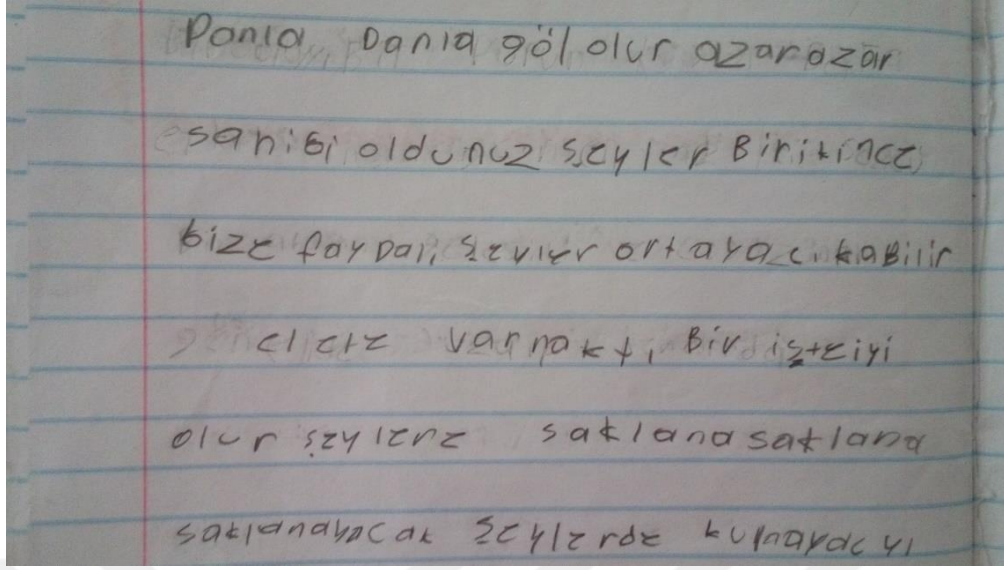 Damla Damla göl olur azar azar
sahibi oldunuz şeyler Birikince
bize faydalı şeyler ortaya çıkabilir
elele varmaktı Bir işte iyi
olur şeylere saklana saklana
saklanayacak şeylerde